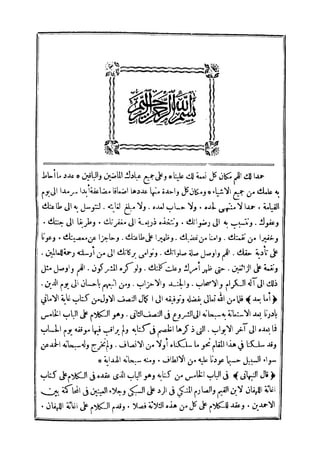 بسم الله الرحمن الرحيم
حمدا لك اللهم مكان كل نعمة لك علينا * وعلى جميع عبادك الماضين والباقين * عدد ما أحاط
به علمك من جميع الاشياء * ومكان كل واحدة منها عددها اضعافا مضاعفة أبدا سرمدا الى يوم
القيامة . حمدا لا منتهى لحده . ولا حساب لعده . ولا مبلغ لغايته . لنتوسل به الى طاعتك
وعفوك . ونتسبب به الى رضوانك . ونتخذه ذريعة الى مغفرتك . وطريقا الى جنتك .
وخفيرا من نقمتك . وامنا من غضبك . وظهيرا على طاعتك . وحاجزا عن معصيتك . وعونا
على تأدية حقك . اللهم واوصل صلة صلواتك . ونوامى بركاتك الى من أرسلته رحمة للعالمين .
ونقمة على الزائغين . حتى ظهر أمرك وعلت كلمتك . ولو كره المشركون . اللهم واوصل مثل
ذلك الى آله الكرام والاصحاب . والجند والاحزاب . ومن اتبعهم باحسان الى يوم الدين .
﴿ أما بعد ﴾ فلما من الله تعالى بفضله وتوفيقه الى اكمال النصف الاول من كتاب غاية الامانى
بادرنا بعد الاستعانة به سبحانه الى الشروع فى النصف الثانى . وهو الكلام على الباب الخامس
فما بعده الى آخر الابواب . التى ذكرها الخصم فى كتابه ولم يراقب فيها موقفه يوم الحساب
وقد سلكنا فى هذا المقام نحو ما سلكناه أولا من الانصاف . ولم نخرج وله سبحانه الحمد عن
سواء السبيل حسبما عودنا عليه من الالطاف . ومنه سبحانه الهداية *
﴿ قال النبهانى ﴾ فى الباب الخامس من كتابه وهو الباب الذى عقده فى الكلام على كتاب
اغاثة اللهفان لابن القيم والصارم المنكى فى الرد على السبكى وجلاء العينين فى المحاكمة بين
الاحمدين . وعقد للكلام على كل من هذه الثلاثة فصلا . وقدم الكلام على اغاثة اللهفان .